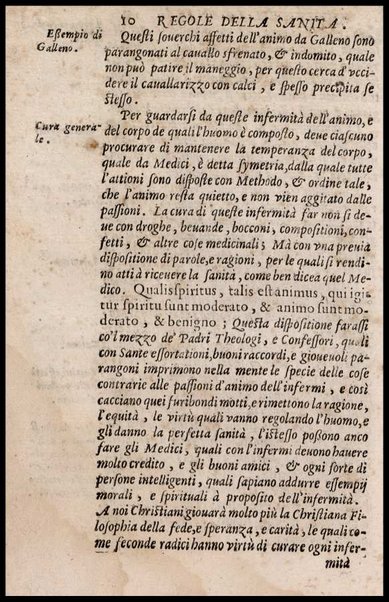 10 REGOLE DELLA SANITA.
Essempio di
Galleno.
Questi souerchi affetti dell'animo da Galleno sono
parangonati al cauallo sfrenato, & indomito, quale
non può patire il maneggio, per questo cerca d'vcci-
dere il cauallarizzo con calci, e spesso precipita se
stesso.
Cura genera-
le.
Per guardarsi da queste infermità dell'animo, e
del corpo de quali l'huomo è composto, deue ciascuno
procurare di mantenere la temperanza del corpo,
quale da Medici, è detta symetria, dalla quale tutte
l'attioni sono disposte con Methodo, & ordine tale,
che l'animo resta quieto, e non vien aggitato dalle
passioni. La cura di queste infermità far non si de-
ue con droghe, beuande, bocconi, compositioni, con-
fetti, & altre cose medicinali; Mà con vna preuia
dispositione di parole, e ragioni, per le quali si rendi-
no atti à riceuere la sanità, come ben dicea quel Me-
dico. Qualis spiritus, talis est animus, qui igi-
tur spiritu sunt moderato, & animo sunt mo-
derato, & benigno; Questa dispositione farassi
co'l mezzo de' Padri Theologi, e Confessori, quali
con Sante essortationi, buoni raccordi, e gioueuoli pa-
rangoni imprimono nella mente le specie delle cose
contrarie alle passioni d'animo dell'infermi, e così
cacciano quei furibondi motti, e rimettono la ragione,
l'equità, le virtù quali vanno regolando l'huomo, e
gli danno la perfetta sanità, l'istesso possono anco
fare gli Medici, quali con l'infermi deuono hauere
molto credito, e gli buoni amici, & ogni sorte di
persone intelligenti, quali sapiano addurre essempij
morali, e spirituali à proposito dell'infermità.
A noi Christiani giouarà molto più la Christiana Fi-
losophia della fede, e speranza, e carità, le quali co-
me feconde radici hanno virtù di curare ogni infer-
mità